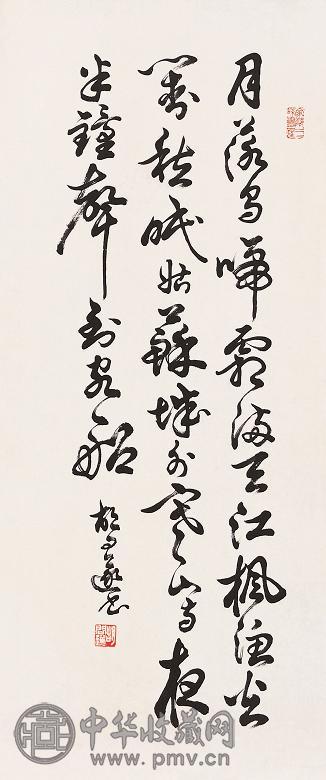 月落烏啼霜滿天江楓漁火
對愁眠姑蘇城外寒山寺夜
半鐘聲到客船
胡問遂書
中华收藏网
www.pmv.cn